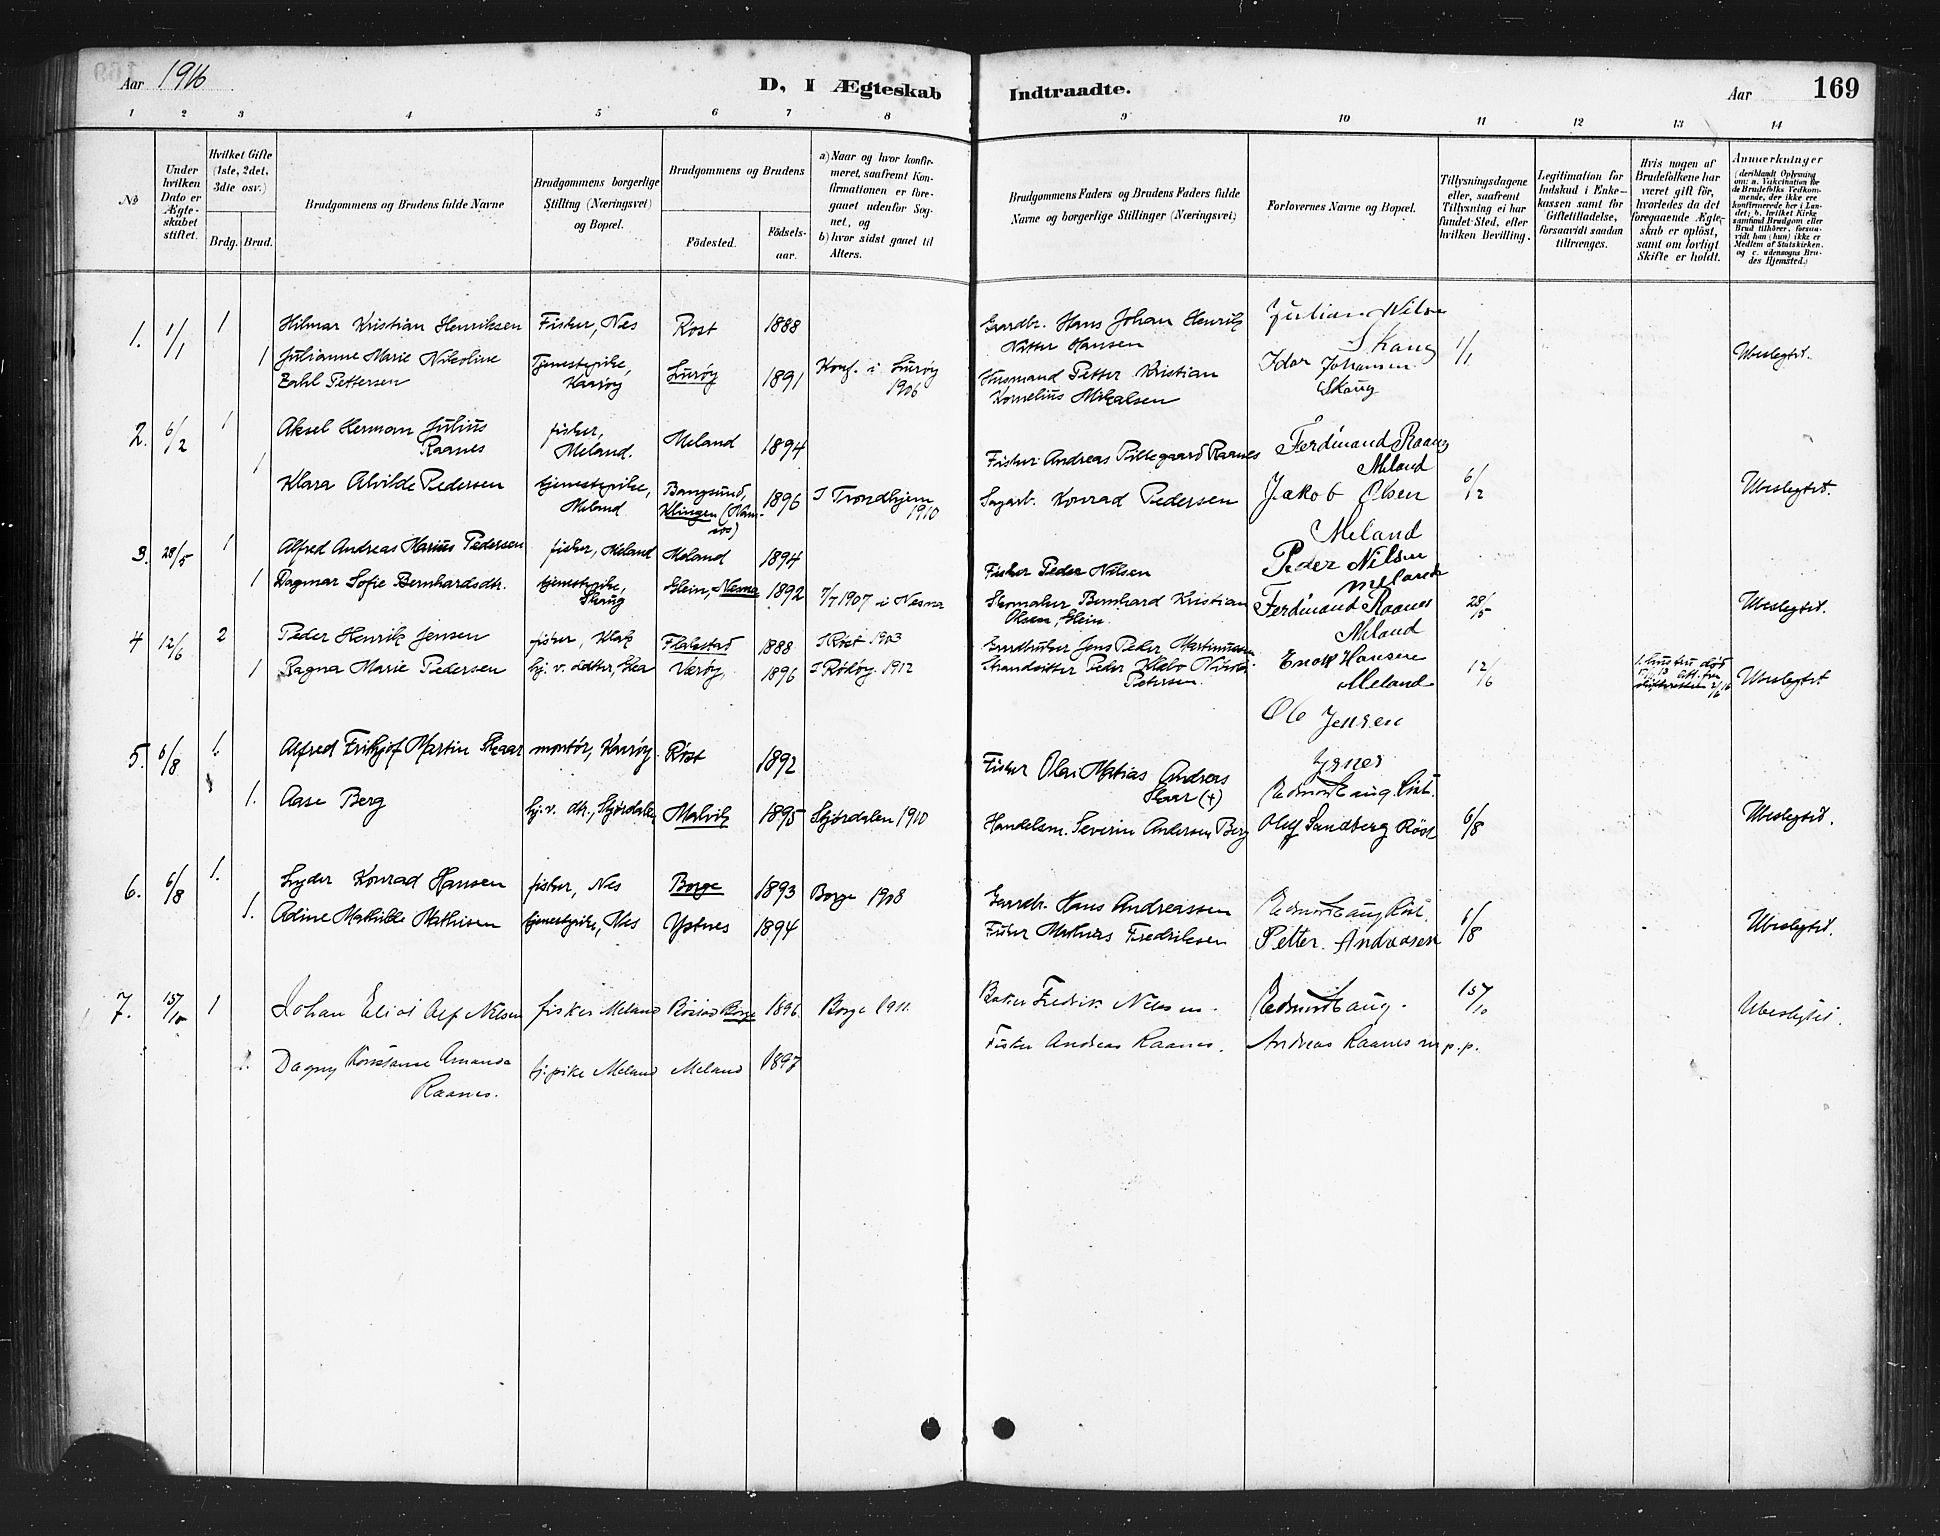 Aar 1916
D, I Ægteskab Indtraadte.
Aar
169
1 2 3 4 5 6 7 8 9 10 11 12 13 14
No
Under hvilken Dato er Ægteskabet stiftet.
Hvilket Gifte (1ste, 2det, 3die osv.)
Brdg. Brud.
Brudgommens og Brudens fulde Navne
Brudgommens borgerlige Stilling (Næringsvei) og Bopæl.
Brudgommens og Brudens
Fødested.
Fødselsaar.
a) Naar og hvor konfirmeret, saafremt Konfirmationen er foregaaet udenfor Sognet, og
b) hvor sidst gaaet til Alters.
Brudgommens Faders og Brudens Faders fulde Navne og borgerlige Stillinger (Næringsvei)
Forlovernes Navne og Bopæl.
Tillysningsdagene eller, saafremt Tillysning ei har fundet Sted, efter hvilken Bevilling.
Legitimation for Indskud i Enkekassen samt for Giftetilladelse, forsaavidt saadan tiltrænges.
Hvis nogen af Brudefolkene har været gift før, hvorledes da det foregaaende Ægteskab er opløst, samt om lovligt Skifte er holdt.
Anmerkninger
(deriblandt Oplysning om: a. Vakcination for de Brudefolks Vedkommende, der ikke ere konfirmerede her i Landet; b. hvilket Kirkesamfund Brudgom eller Brud tilhører, forsaavidt han (hun) ikke er Medlem af Statskirken. og c. udensogns Brudes Hjemsted.)
1. 1/1 1 Hilmar Kristian Henriksen Fisker, Nes Røst 1888 Gaardbr. Hans Johan Henrik Hansen Julian
Skaug 1/1 Ubeslegtet.
1 Julianne Marie Nikoline Zahl Pettersen Tjenestepike, Kaarøy Lurøy 1891 Konf. i Lurøy 1906 Husmand Petter Kristian Kornelius Mikalsen Idar Johansen Skaug
2. 6/2 1 Aksel Herman Julius Raanes fisker, Meland. Meland 1894 Fisker Andreas Raanes Ferdinand Raanes Meland
1 Klara Alvilde Pedersen tjenestepike, Meland Bangsund, Klingen 1896 I Trondhjem 1910 Sagarb. Konrad Pedersen Jakob Olsen Meland 6/2 Ubeslegtet.
3. 28/5 1 Alfred Andreas Marius Pedersen fisker, Meland Meland 1894 Fisker Peder Nilsen Peder Nilsen Meland
1 Dagmar Sofie Bernhardsdtr. tjenestepike, Skaug Glein, Nesna 1892 7/7 1907 i Nesna Skomaker Bernhard Kristian Olsen, Glein. Ferdinand Raanes Meland 28/5 Ubeslegtet.
4 12/6 2 Peder Henrik Jensen fisker, Flakstad 1888 I Røst 1903 Gaardbruker Jens Peder Martinussen Enok Hansen Meland
1 Ragna Marie Pedersen hj. v. datter, Værøy, 1896 I 1912 Strandsitter Peder Petersen. Ole Jensen 12/6 1. hustru død Ubeslegtet
5. 6/8 1. Alfred Fritjof Martin Skaar montør, Kaarøy Røst 1892 Fisker Olai Matias Andreas Skaar (+)
1. Aase Berg hj. v. dtr., Stjørdalen Malvik 1895 Stjørdalen 1910 Handelsm. Severin Andersen Berg Olaf Sandberg Røst 6/8 Ubeslegtet.
6. 6/8 1. Lyder Konrad Hansen fisker, Nes Borge 1893 Borge 1908 Gaardbr. Hans Andreassen Røst. 6/8
1. Adine Mathilde Mathisen tjenestepike, Nes Ystnes 1894 Fisker Fredriksen Petter Andreasen Ubeslegtet.
7. 15/10 1 Johan Eliot Alf Nilsen fisker Meland Borge 1896 Borge 1911. Fredrik Nilssen. 15/10 Ubeslegtet.
1. Dagny Konstanse Amanda Raanes. tj. pike Meland Meland 1897 Fisker Andreas Raanes. Andreas Raanes m.p.p.